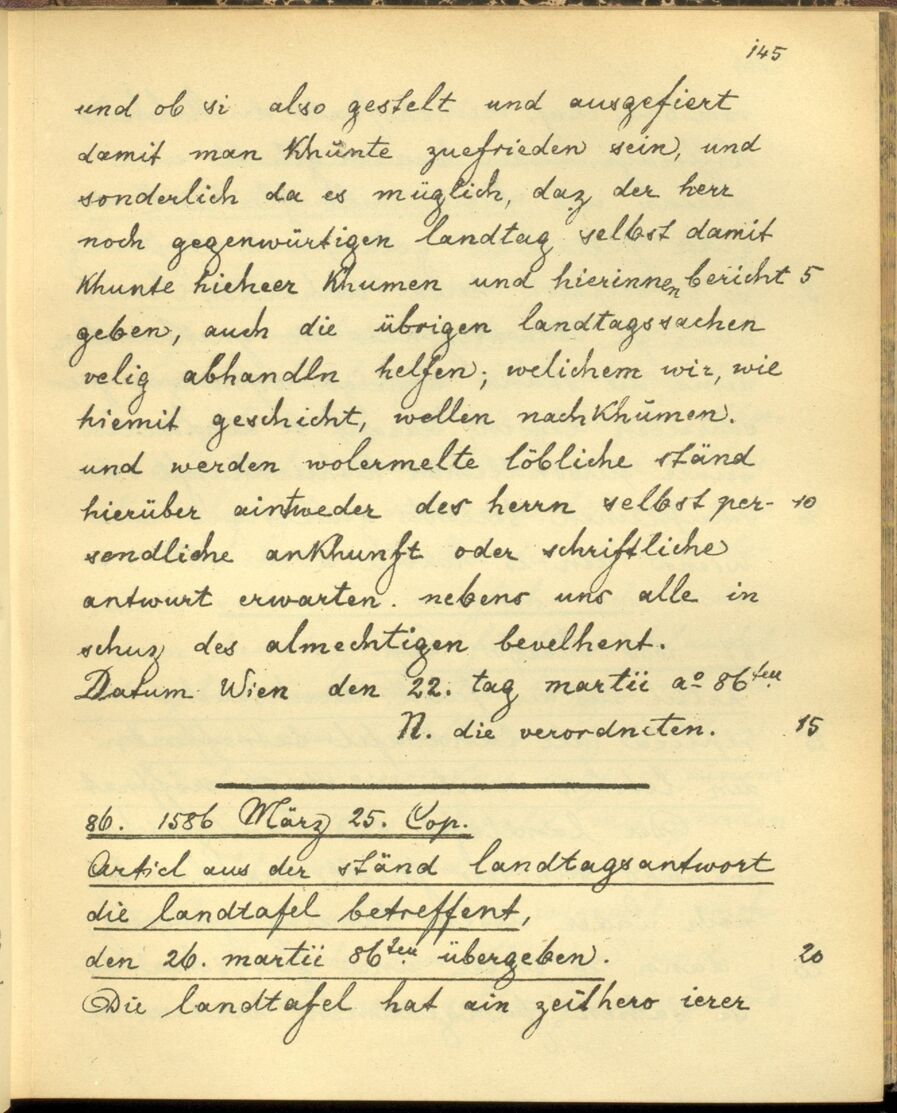 145
und ob si also gestelt und ausgefiert
damit man khünte zuefrieden sein, und
sonderlich da es müglich, daz der herr
noch gegenwürtigen landtag selbst damit
khunte hieheer khumen und hierinnen bericht 5
geben, auch die übrigen landtagssachen
velig abhandln helfen; welichem wir, wie
hiemit geschicht, wellen nachkhümen.
und werden wolermelte löbliche ständ
hierüber aintweder des herrn selbst per- 10
sendliche ankhunft oder schriftliche
antwurt erwarten. nebens uns alle in
schuz des almechtigen bevelhent.
Datum Wien den 22. tag martii aº 86ten
N. die verordneten. 15
86. 1586 März 25. Cop.
Articl aus der ständ landtagsantwort
die landtafel betreffent,
den 26. martii 86ten übergeben. 20
Die landtafel hat ain zeithero ierer